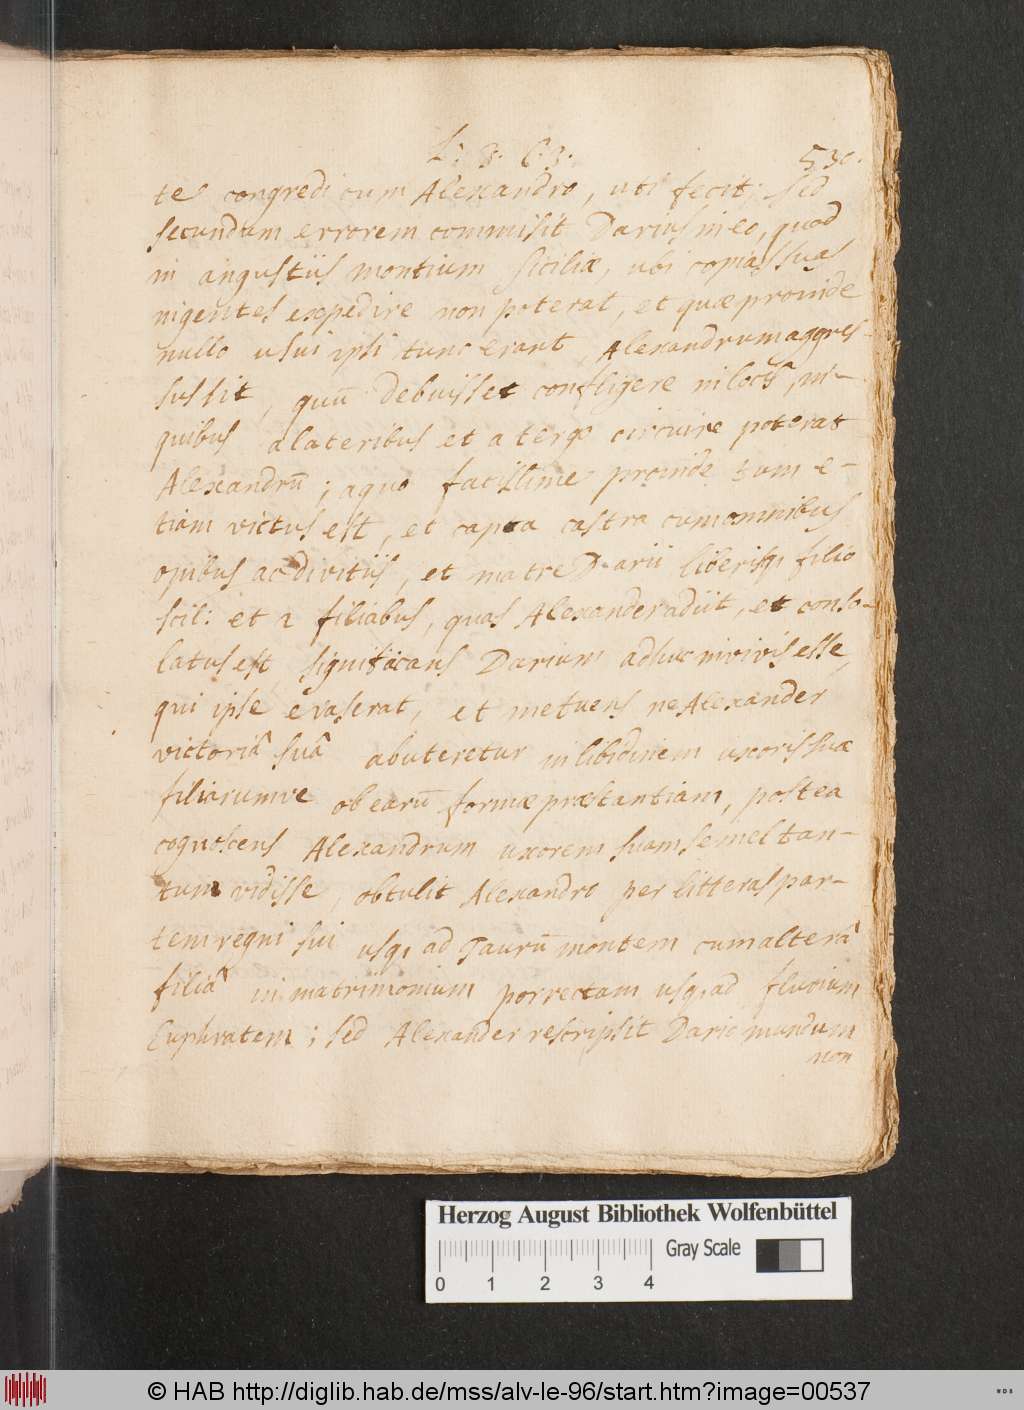 L: 3. C. 3. 530.
te congredi cum Alexandro, uti fecit; sed
secundum errorem commisit Darius in eo, quod
in angustiis montium Siciliæ, ubi copias suas
ingentes expedire non poterat, et quæ proinde
nullo usui ipsi tunc erant, Alexandrum aggres-
sus sit, quū debuisset confligere in locis, in-
quibus a lateribus et a tergo circuire poterat
Alexandrū; a quo facillime proinde tum e-
tiam victus est, et capta castra cum omnibus
opibus ac divitiis, et matre Darii liberisq, filio
scil: et 2 filiabus, quas Alexander adiit, et conso-
latus est significans Darium adhuc in vivis esse,
qui ipse evaserat, et metuens ne Alexander
victoriâ suâ abuteretur in libidinem uxoris suæ
filiarumve ob earū formæ præstantiam, postea
cognoscens Alexandrum uxorem suam semel tan-
tum vidisse, obtulit Alexandro per litteras par-
tem regni sui usq, ad Taurū montem cum alterâ
filiâ in matrimonium porrectam usq, ad fluvium
Euphratem; sed Alexander rescripsit Dario mundum
non
Herzog August Bibliothek Wolfenbüttel
0 1 2 3 4 Gray Scale
© HAB http://diglib.hab.de/mss/alv-le-96/start.htm?image=00537